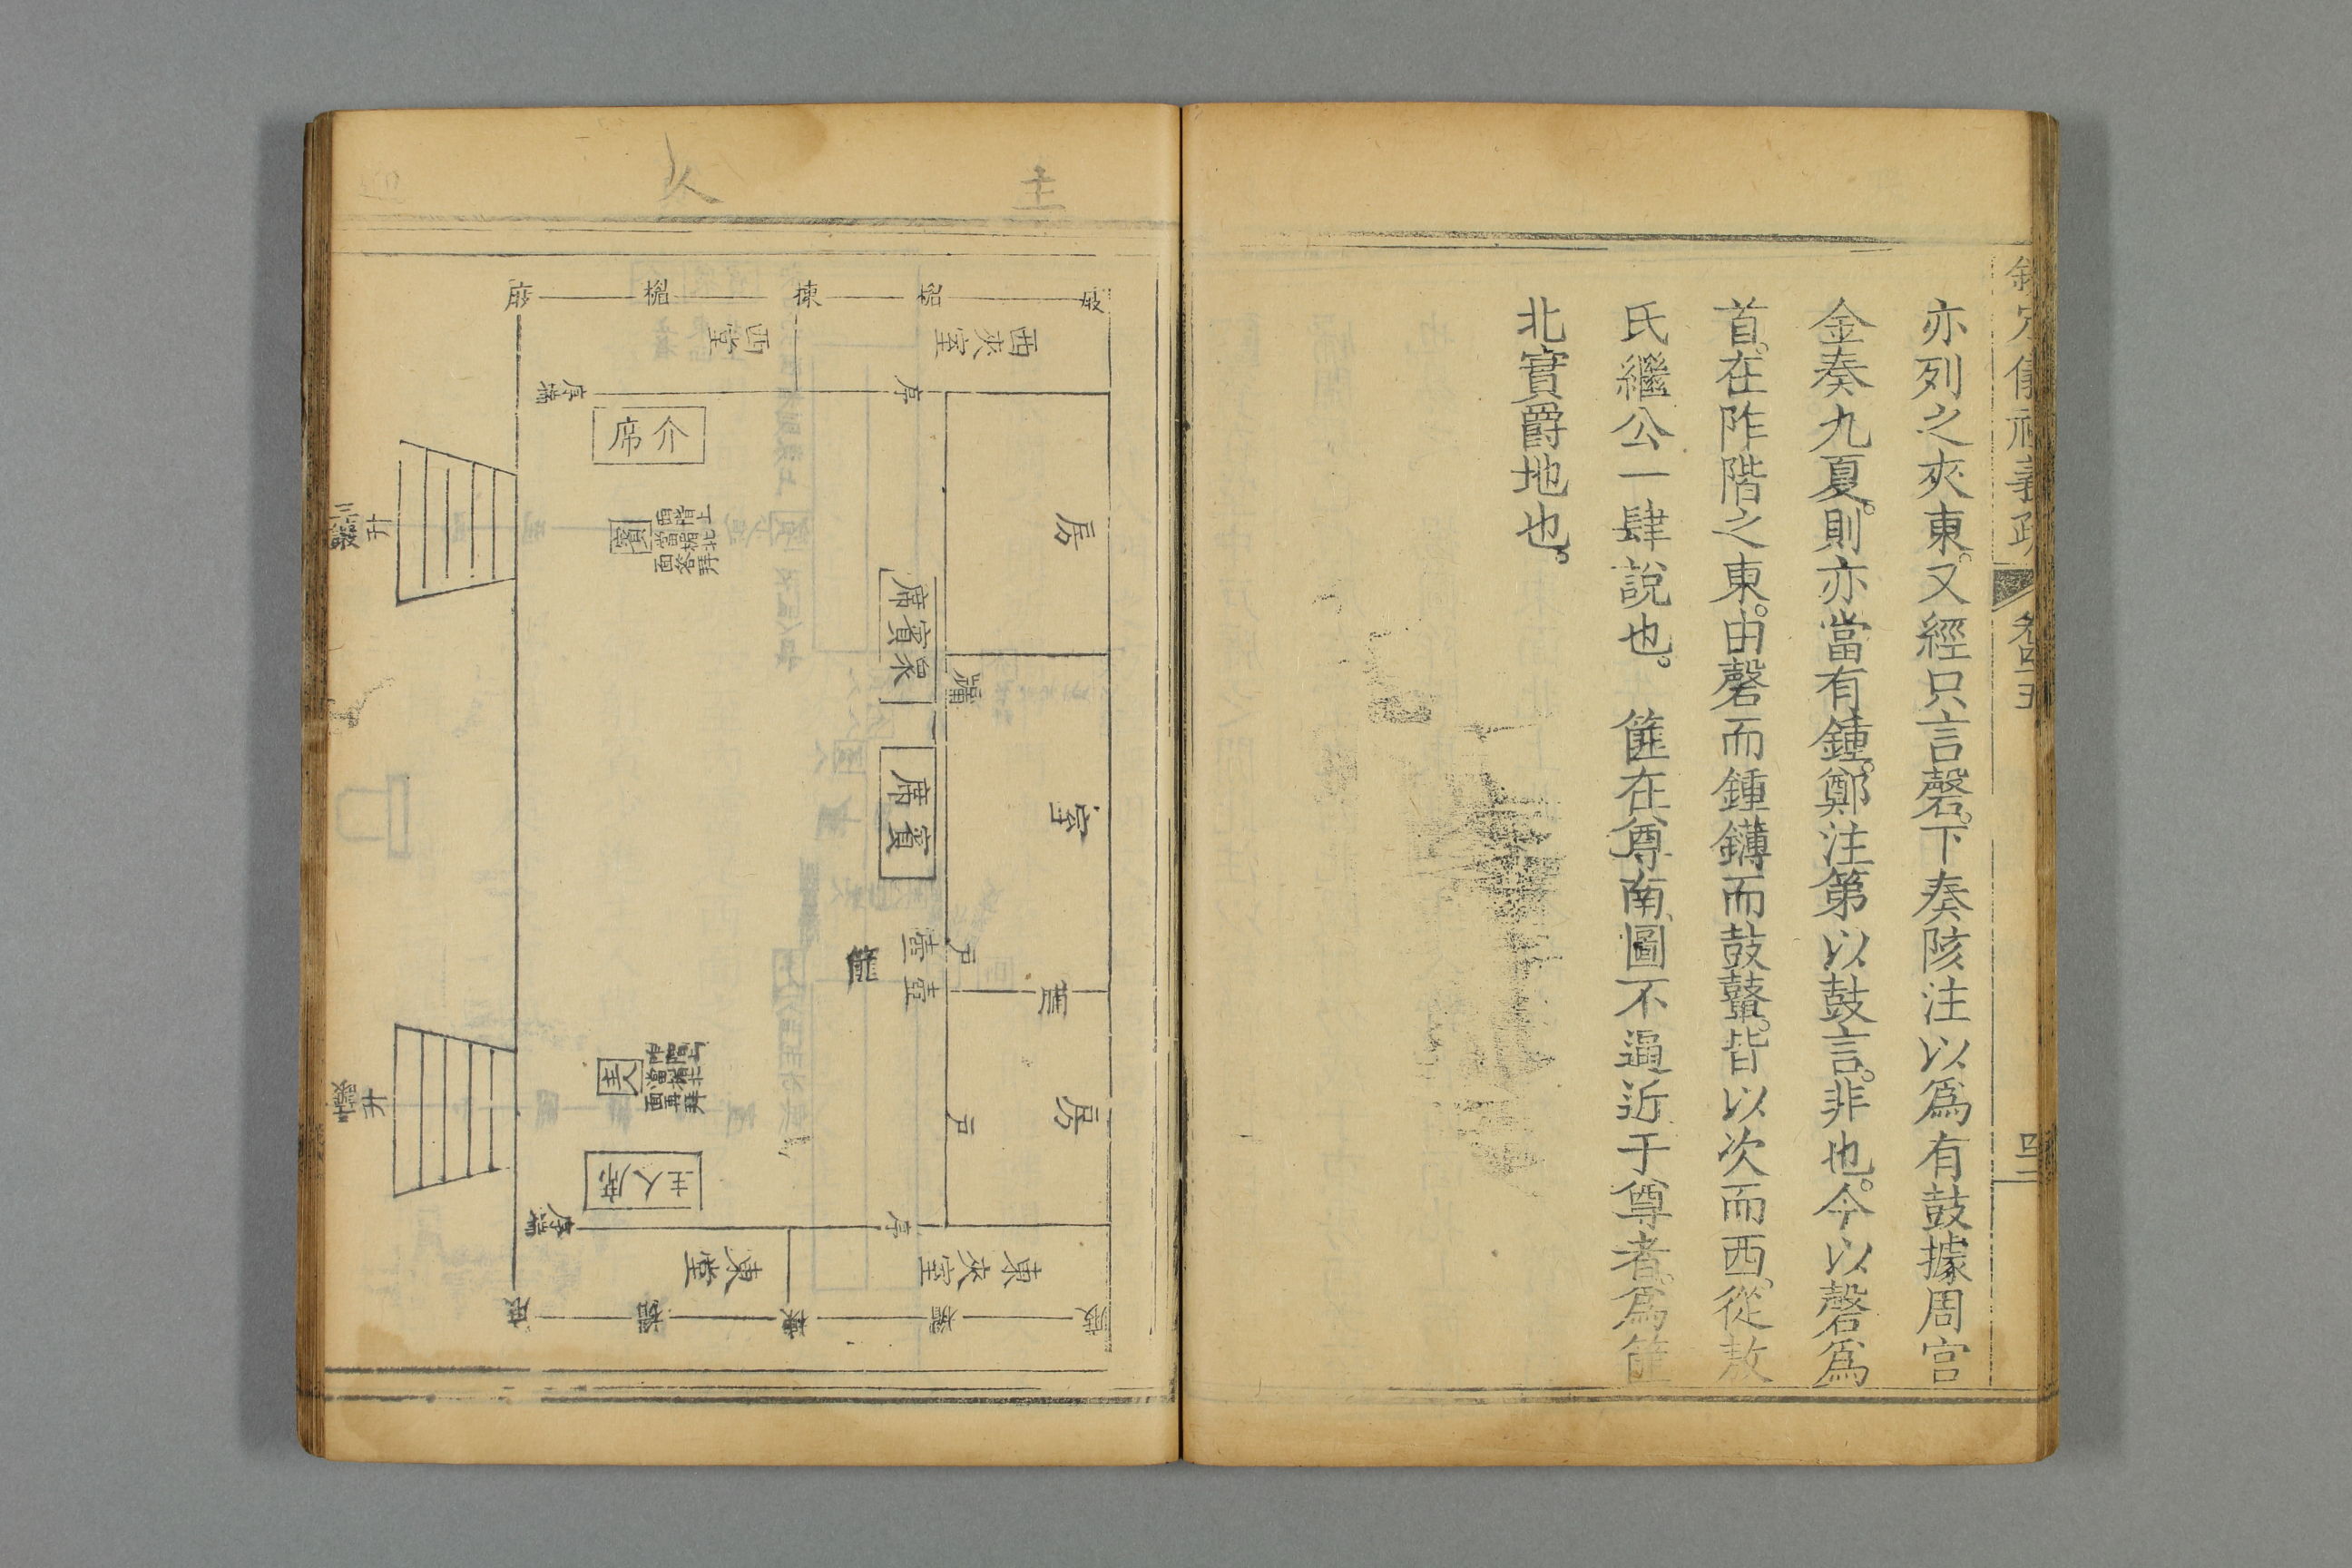 亦列之夾東。又經只言磬。下奏陔注以爲有鼓據周官
金奏九夏。則亦當有鍾。鄭注第以鼓言。非也。今以磬爲
首。在阼階之東。由磬而鍾鑮而鼓鼙。皆以次而西。從敖
氏繼公一肆說也。 篚在尊南圖不逼近于尊者。爲篚
北實爵地也。
義疏
主
人
房
室
房
西夾室
東夾室
牖
戶
戶
序
序
棟
眾賓席
賓席
壺
篚
西堂
東堂
楣
介席
主人席
賓
西階上
當楣北
面答拜
主人
阼階上
當楣北
面再拜
序端
序端
升
三讓
升